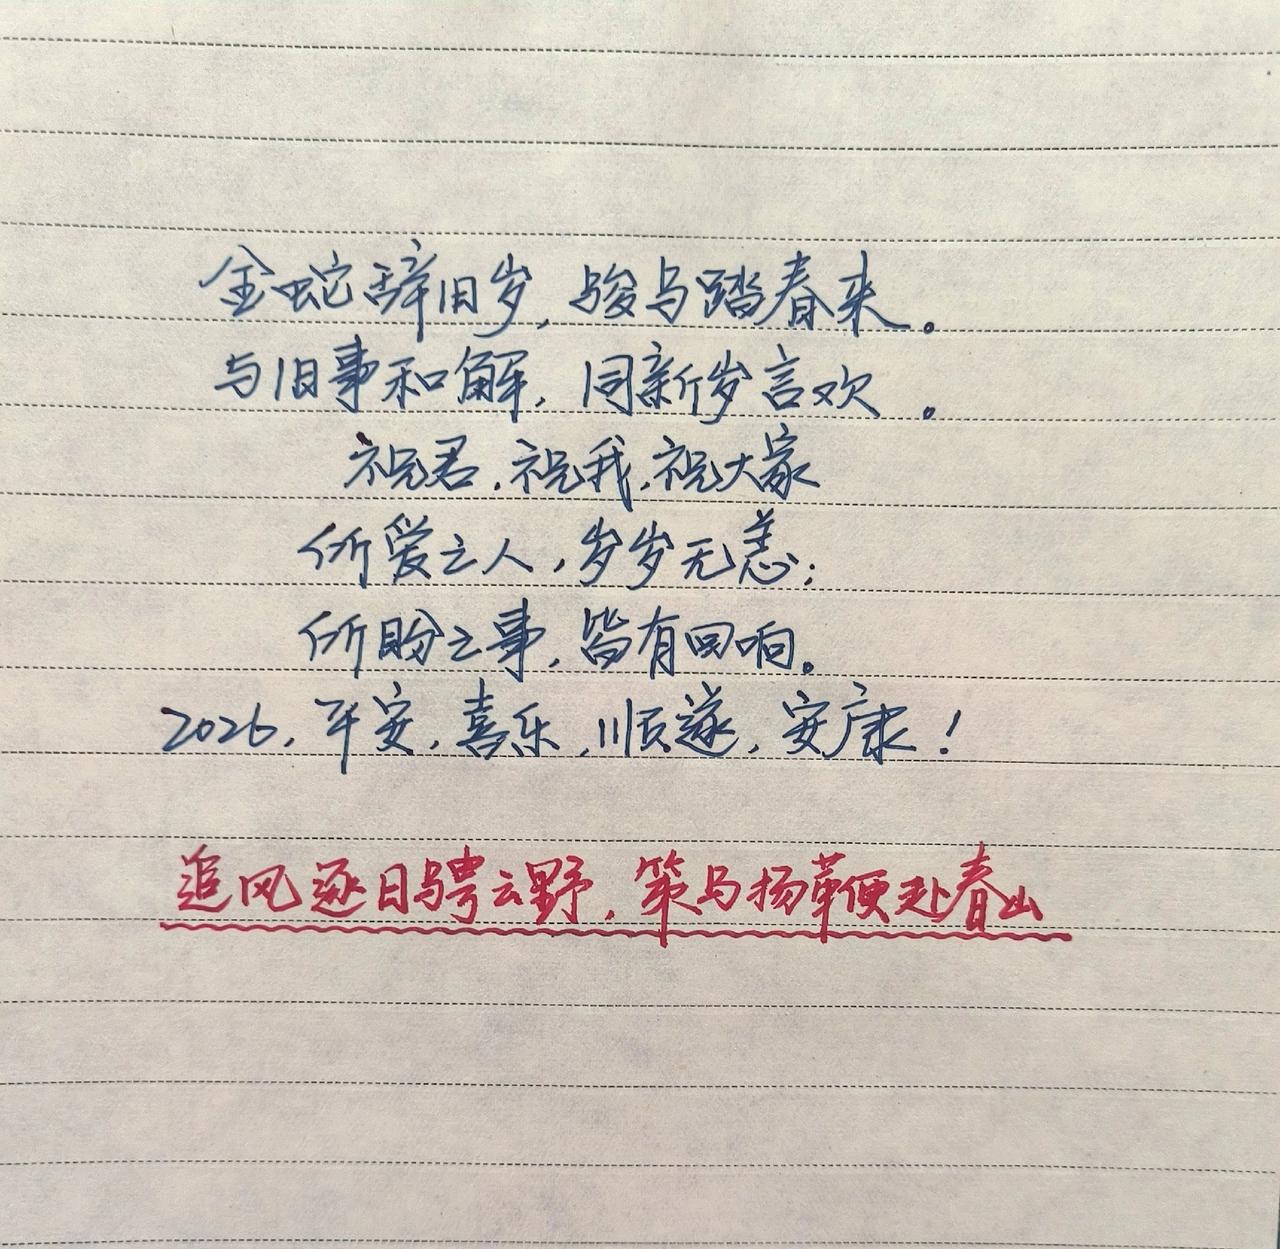 金蛇辞旧岁,骏马踏春来。
与旧事和解,同新岁言欢。
祝君,祝我,祝大家
所爱之人,岁岁无恙;
所盼之事,皆有回响。
2026,平安,喜乐,顺遂,安康!
追风逐日骋云野,策马扬鞭便赴春山